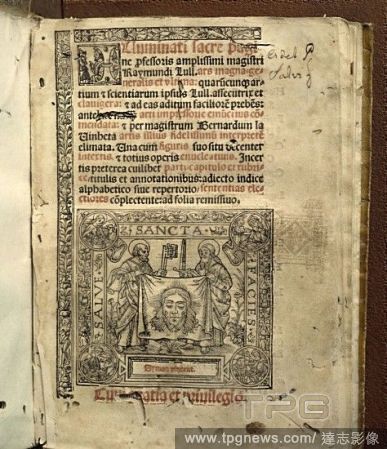 Illuminati sacre pagi
ne professoris amplissimi magistri
Raymundi Lull. ars magna ge-
neralis et vltima: quarucunq; ar-
tium & scientiarum ipsius Lull. assecutrix et
clauigera: & ad eas aditum faciliorē prebēs:
ante arti impressorie emūctius cō-
mendata: & per magistrum Bernardum la
Vinheta artis illius fidelissimū interpretē
elimata. Una cum figuris suo situ decenter
insertis & totius operis enucleatiuis. Incer
tis preterea cuilibet parti capitulo et rubri-
ce titulis et annotationibus: adiecto indice
alphabetico siue repertorio sententias ele-
ctiores cōplectente: ad folia remissiuo.
SANCTA
SALVE
FACIES
Cum gratia et priuilegio.
TPG
www.tpgnews.com/ 達志影像